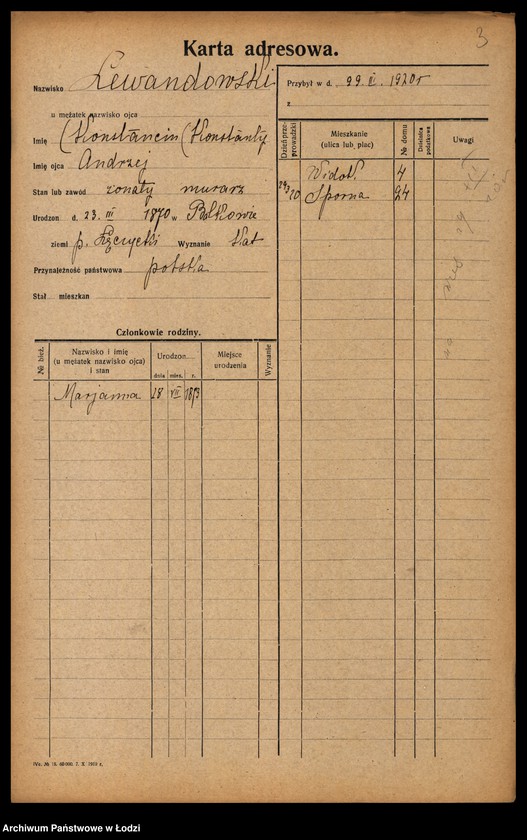 3
Karta adresowa.
Nazwisko Lewandowski
u mężatek nazwisko ojca
Imię (Konstancin (Konstanty
Imię ojca Andrzej
Stan lub zawód żonaty murarz
Urodzon d. 23. III 1870 w
ziemi p. Łęczycki Wyznanie kat
Przynależność państwowa polska
Stał. mieszkan
Przybył w d. 29. III. 1920 r
z
Dzień przeprowadzki
Mieszkanie
(ulica lub plac)
№ domu
Dzielnica podatkowa
Uwagi
4
29/3 20 Sporna 24
Członkowie rodziny.
№ bież.
Nazwisko i imię
(u mężatek nazwisko ojca)
i stan
Urodzon
dnia mies. r.
Miejsce
urodzenia
Wyznanie
Marjanna 18 VII 1873
Archiwum Państwowe w Łodzi